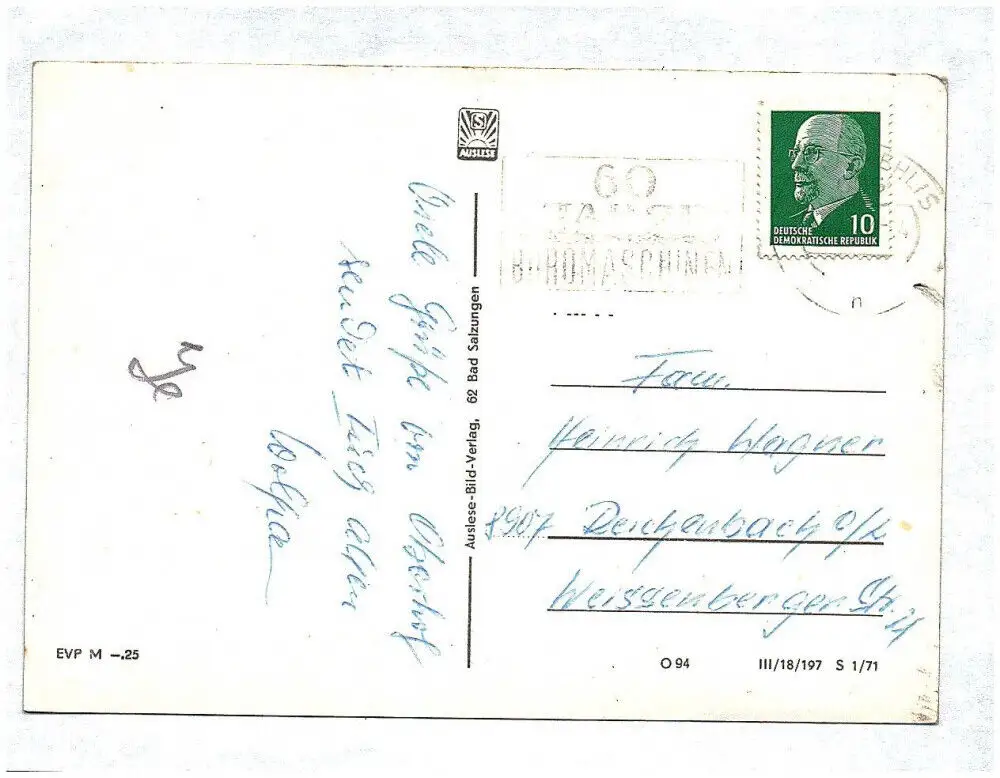 S
AUSLESE
60
JAHRE
BÜROMASCHINEN
DEUTSCHE
DEMOKRATISCHE REPUBLIK
10
n
Viele Grüße von Oberhof
sendet Euch allen
Auslese-Bild-Verlag, 62 Bad Salzungen
Fam.
Heinrich Wagner
8907 Reichenbach O/L
Weissenberger Str.
EVP M –.25
O 94
III/18/197 S 1/71